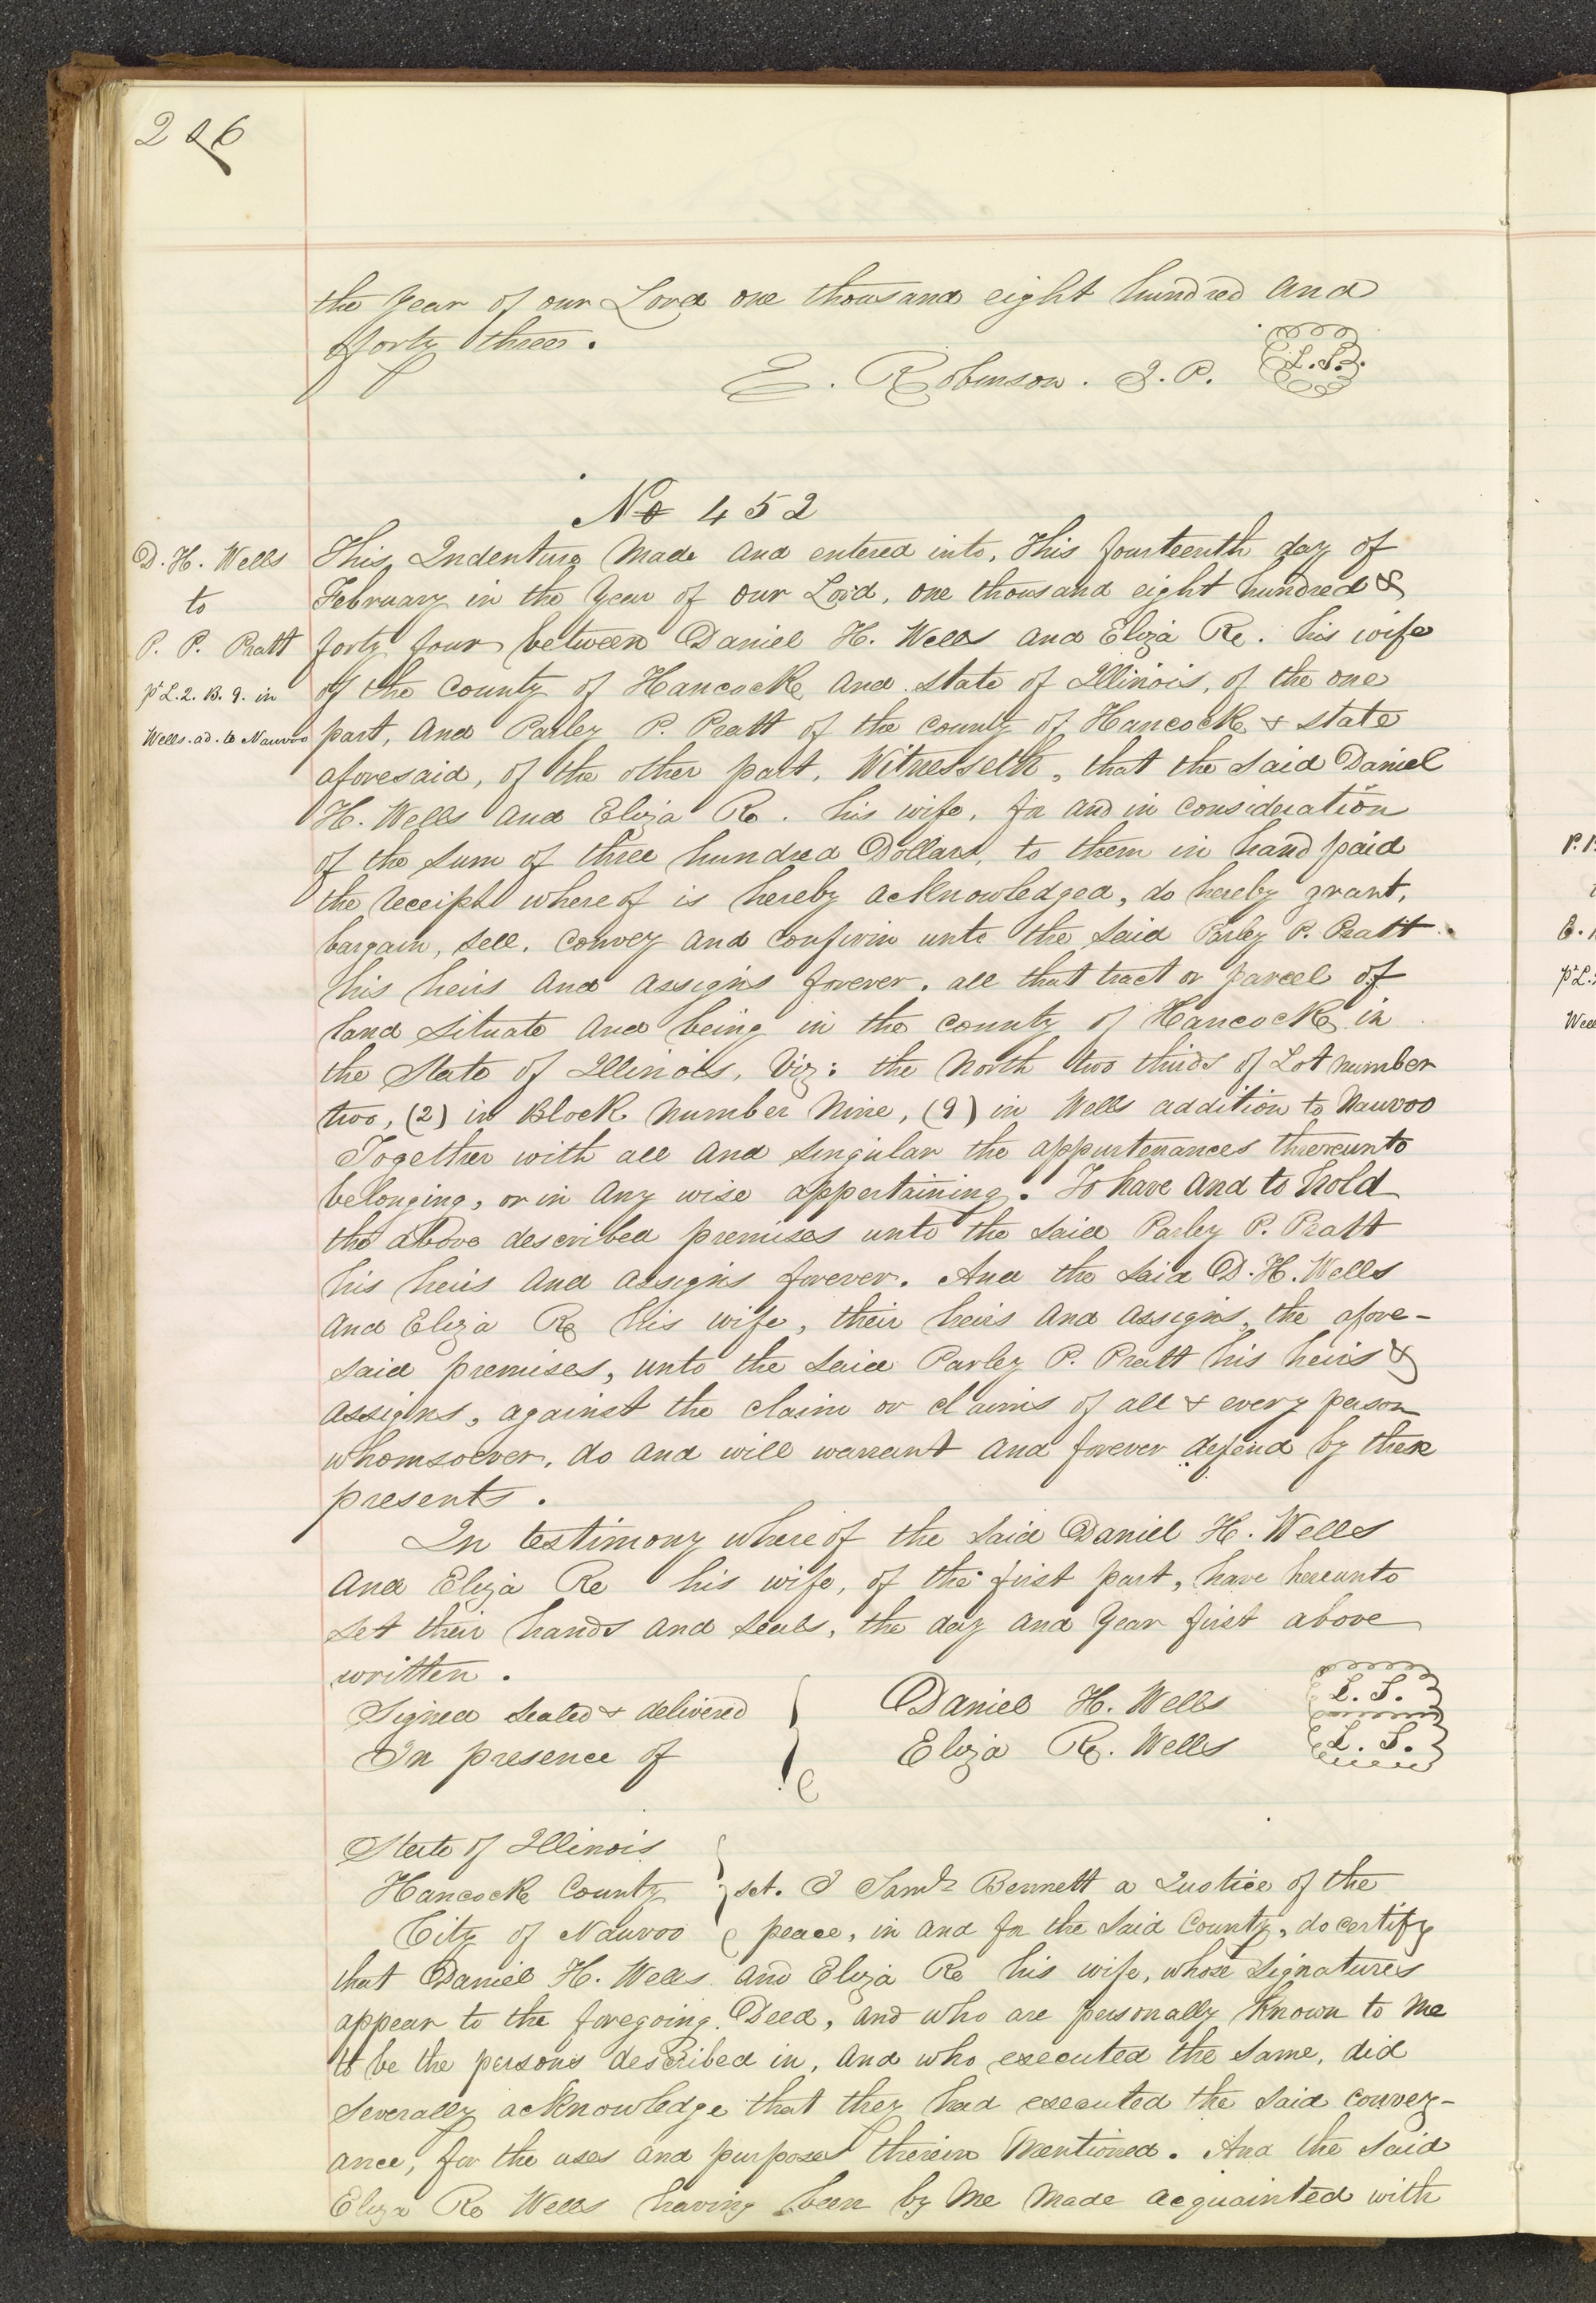 226
the Year of our Lord one thousand eight hundred and
forty three.
E. Robinson. J. P. L. S.
No 452
D. H. Wells
to
P. P. Pratt
pt L. 2. B. 9. in
Wells. ad. to Nauvoo
This Indenture Made and entered into, This fourteenth day of
February in the Year of our Lord, one thousand eight hundred &
forty four between Daniel H. Wells and Eliza R. his wife
of the County of Hancock and state of Illinois, of the one
part, and Parley P. Pratt of the county of Hancock & state
aforesaid, of the other part, Witnesseth, that the said Daniel
H. Wells and Eliza R. his wife, for and in consideration
of the sum of three hundred Dollars, to them in hand paid
the receipt whereof is hereby acknowledged, do hereby grant,
bargain, sell, convey and confirm unto the said Parley P. Pratt
his heirs and assigns forever, all that tract or parcel of
land situate and being in the county of Hancock in
the State of Illinois, Viz: the North two thirds of Lot number
two, (2) in Block Number Nine, (9) in Wells addition to Nauvoo
Together with all and singular the appurtenances thereunto
belonging, or in any wise appertaining. To have and to hold
the above described premises unto the said Parley P. Pratt
his heirs and assigns forever. And the said D. H. Wells
and Eliza R his wife, their heirs and assigns, the afore-
said premises, unto the said Parley P. Pratt his heirs &
assigns, against the claim or claims of all & every person
whomsoever, do and will warrant and forever defend by these
presents.
In testimony whereof the said Daniel H. Wells
and Eliza R his wife, of the first part, have hereunto
set their hands and seals, the day and Year first above
written.
Signed sealed & delivered
In presence of
Daniel H. Wells L. S.
Eliza R. Wells L. S.
State of Illinois
Hancock County
City of Nauvoo
sct. I Saml. Bennett a Justice of the
peace, in and for the said County, do certify
that Daniel H. Wells and Eliza R his wife, whose signatures
appear to the foregoing Deed, and who are personally known to me
to be the persons described in, and who executed the same, did
severally acknowledge that they had executed the said convey-
ance, for the uses and purposes therein Mentioned. And the said
Eliza R Wells having been by Me Made acquainted with